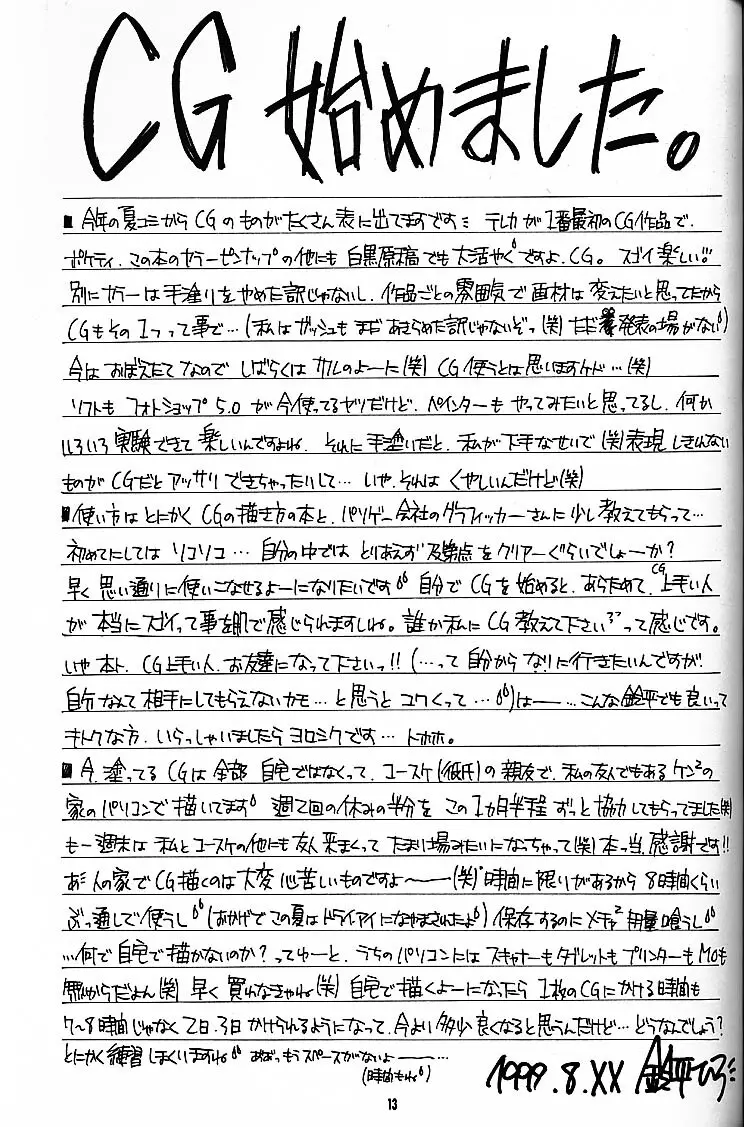 CG 始めました。
■今年の夏コミからCGのものがたくさん表に出てますですミ テレカが1番最初のCG作品で、
ポケティ、この本のカラーピンナップの他にも白黒原稿でも大活やくですよ、CG。スゴイ楽しい!!
別にカラーは手塗りをやめた訳じゃないし、作品ごとの雰囲気で画材は変えたいと思ってたから
CGもその1つって事で…(私はガッシュもまだあきらめた訳じゃないぞっ(笑)ただ発表の場がない)
今はおぼえたてなのでしばらくはサルのよーに(笑)CG使うとは思いますケド…(笑)
ソフトもフォトショップ5.0が今使ってるヤツだけど、ペインターもやってみたいと思ってるし、何か
いろいろ実験できて楽しいんですよね、それに手塗りだと、私が下手なせいで(笑)表現しきれない
ものがCGだとアッサリできちゃったいして…いや、それはくやしいんだけど(笑)
■使い方はとにかくCGの描き方の本と、パソゲー会社のグラフィッカーさんに少し教えてもらって…
初めてにしてはソコソコ…自分の中ではとりあえず及第点をクリアーぐらいでしょーか?
早く思い通りに使いこなせるよーになりたいです 自分でCGを始めると、あらためて、CG上手い人
が本当にスゴイって事を肌で感じられますしね。誰か私にCG教えて下さいって感じです。
いや本ト、CG上手い人、お友達になって下さいっ!!(…って自分からなりに行きたいんですが、
自分なんて相手にしてもらえないカモ…と思うとコワくって…)はー…こんな鈴平でも良いって
キトクな方、いらっしゃいましたらヨロシクです…トホホ。
■今、塗ってるCGは全部自宅ではなくって、コースケ(彼氏)の親友で、私の友人でもあるケン²の
家のパソコンで描いてます 週2回の休みの半分をこの1カ月半程ずっと協力してもらってました(笑)
もー週末は私とコースケの他にも友人来まくってたまり場みたいになっちゃって(笑)本っ当、感謝です!!
あ、人の家でCG描くのは大変心苦しいものですよ〜(笑)時間に限りがあるから8時間くらい
ぶっ通しで使うし(おかげでこの夏はドライアイになやまされたよ)保存するのにメチャ²用量喰うし
…何で自宅で描かないのか?ってゆーと、うちのパソコンにはスキャナーもタブレットもプリンターもMOも
無いからだよん(笑)早く買わなきゃね(笑)自宅で描くよーになったら1枚のCGにかける時間も
7〜8時間じゃなく2日、3日かけられるようになって、今より多少良くなると思うんだけど…どうなんでしょう?
とにかく練習しまくいますね ああっもうスペースがないよー…
(時間もね)
1999.8.XX 鈴平ひろ
13